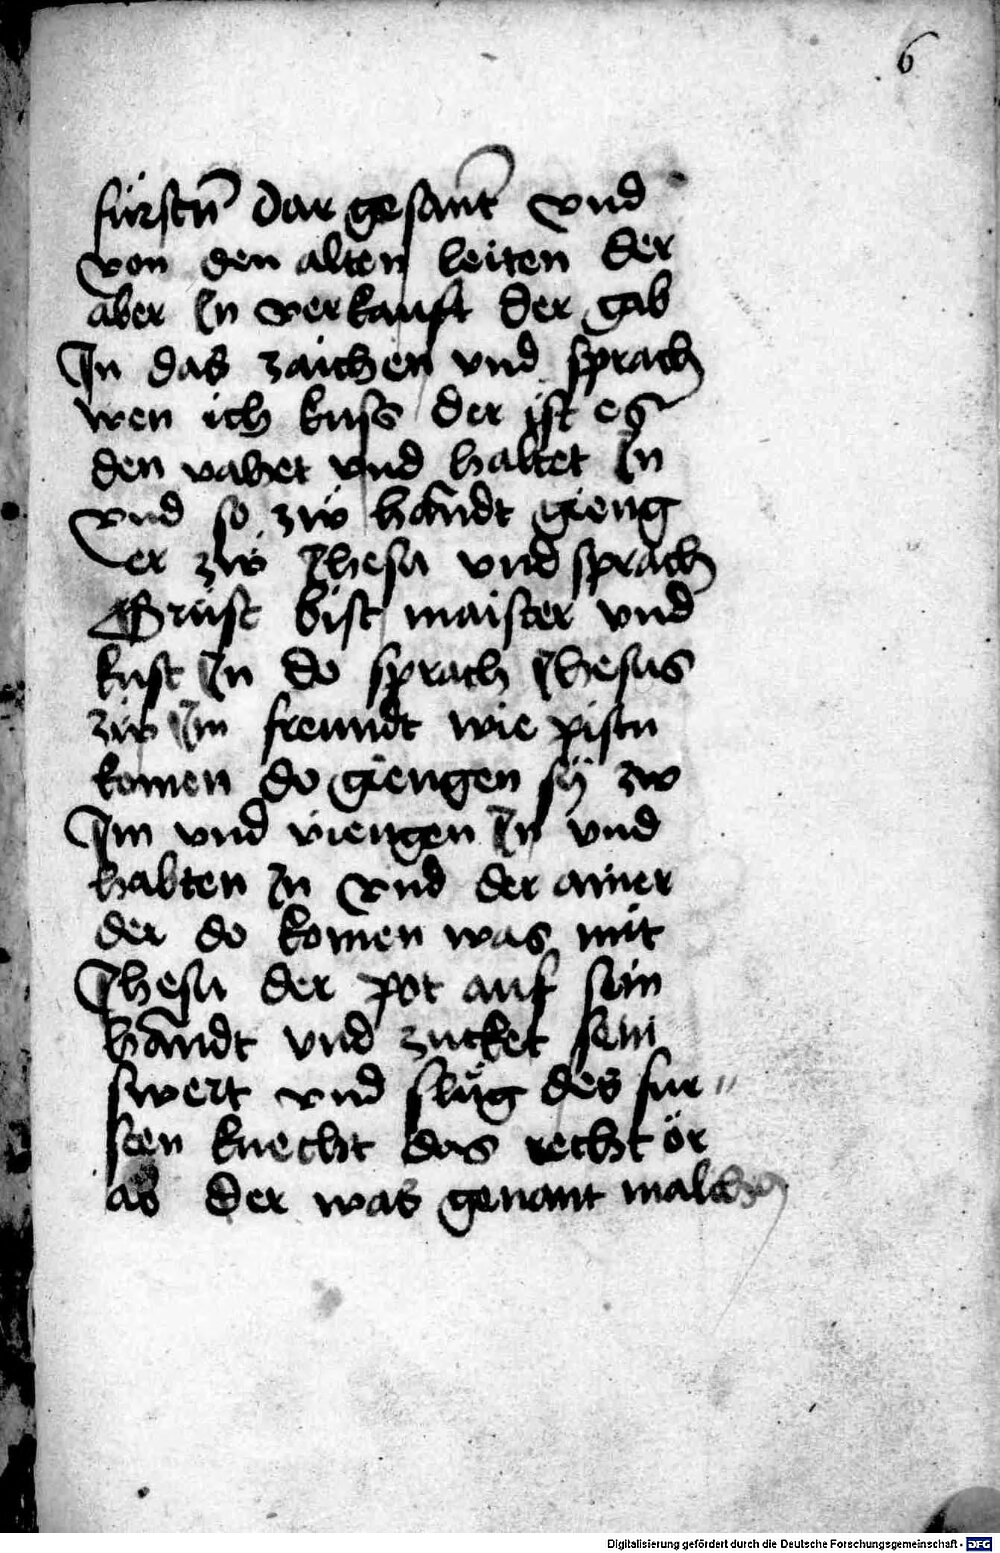 6
fürstn̄ dar gesant vnd
von den alten leiten der
aber In verkauft der gab
In das zaichen vnd sprach
wen ich kuss der ist es
den vahet vnd haltet In
vnd so zw handt gieng
er zw Jhesu vnd sprach
Grüst bist maister vnd
kust In do sprach Jhesus
zw Im freundt wie pistu
komen do giengen sÿ zw
Im vnd viengen In vnd
habten In vnd der ainer
der do komen was mit
Jhesu der pot auf sein
handt vnd zucket sein
swert vnd slůg des fur〃
sten knecht das recht ör
ab der was genant malchus
Digitalisierung gefördert durch die Deutsche Forschungsgemeinschaft - DFG